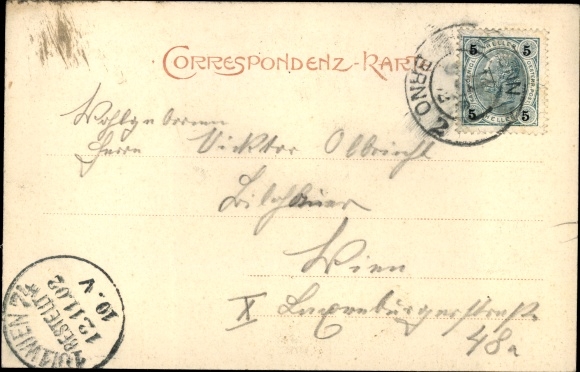 CORRESPONDENZ-KARTE
5 5
HELLER
5 5
HELLER
BRÜNN
BRNO 2
Wohlgeboren
Herrn Vicktor Olbricht
Bildhauer
Wien
X Laxenburgerstraße
48a
WIEN
BESTELLT
12.11.02
10.V